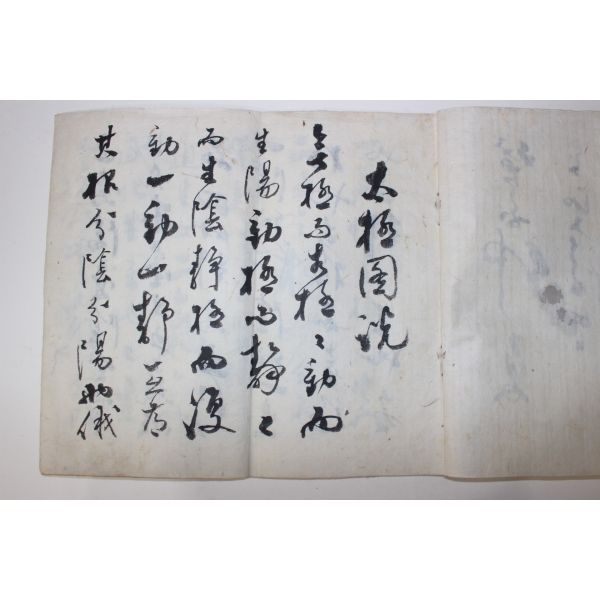 太極圖說
無極而太極〻動而
生陽動極而靜〻
而生陰靜極而復
動一動一靜互為
其根分陰分陽兩儀